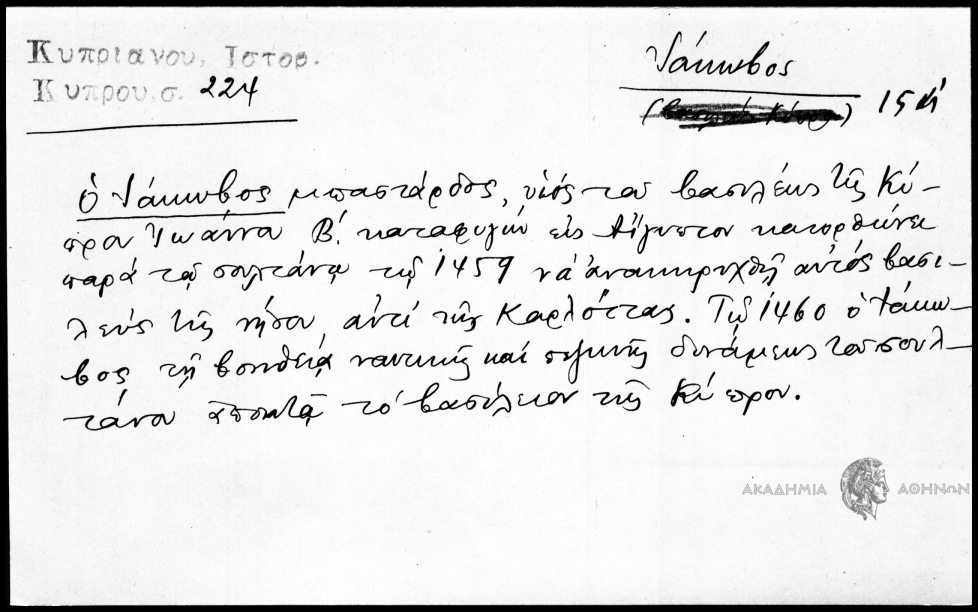 Κυπριανου, Ιστορ.
Κυπρου, σ. 224
Ἰάκωβος
15
Ὁ Ἰάκωβος μπαστάρδος, υἱός του βασιλέως τῆς Κύ-
πρου Ἰωάννου Β΄. καταφυγών εἰς Αἴγυπτον κατορθώνει
παρά τῷ σουλτάνῳ τῷ 1459 νά ἀνακηρυχθῇ αὐτός βασι-
λεύς τῆς νήσου ἀντί τῆς Καρλόττας. Τῷ 1460 ὁ Ἰάκω-
βος τῇ βοηθείᾳ ναυτικῆς καί πεζικῆς δυνάμεως του σουλ-
τάνου ἀποκτᾷ τό βασίλειον τῆς Κύπρου.
ΑΚΑΔΗΜΙΑ ΑΘΗΝΩΝ